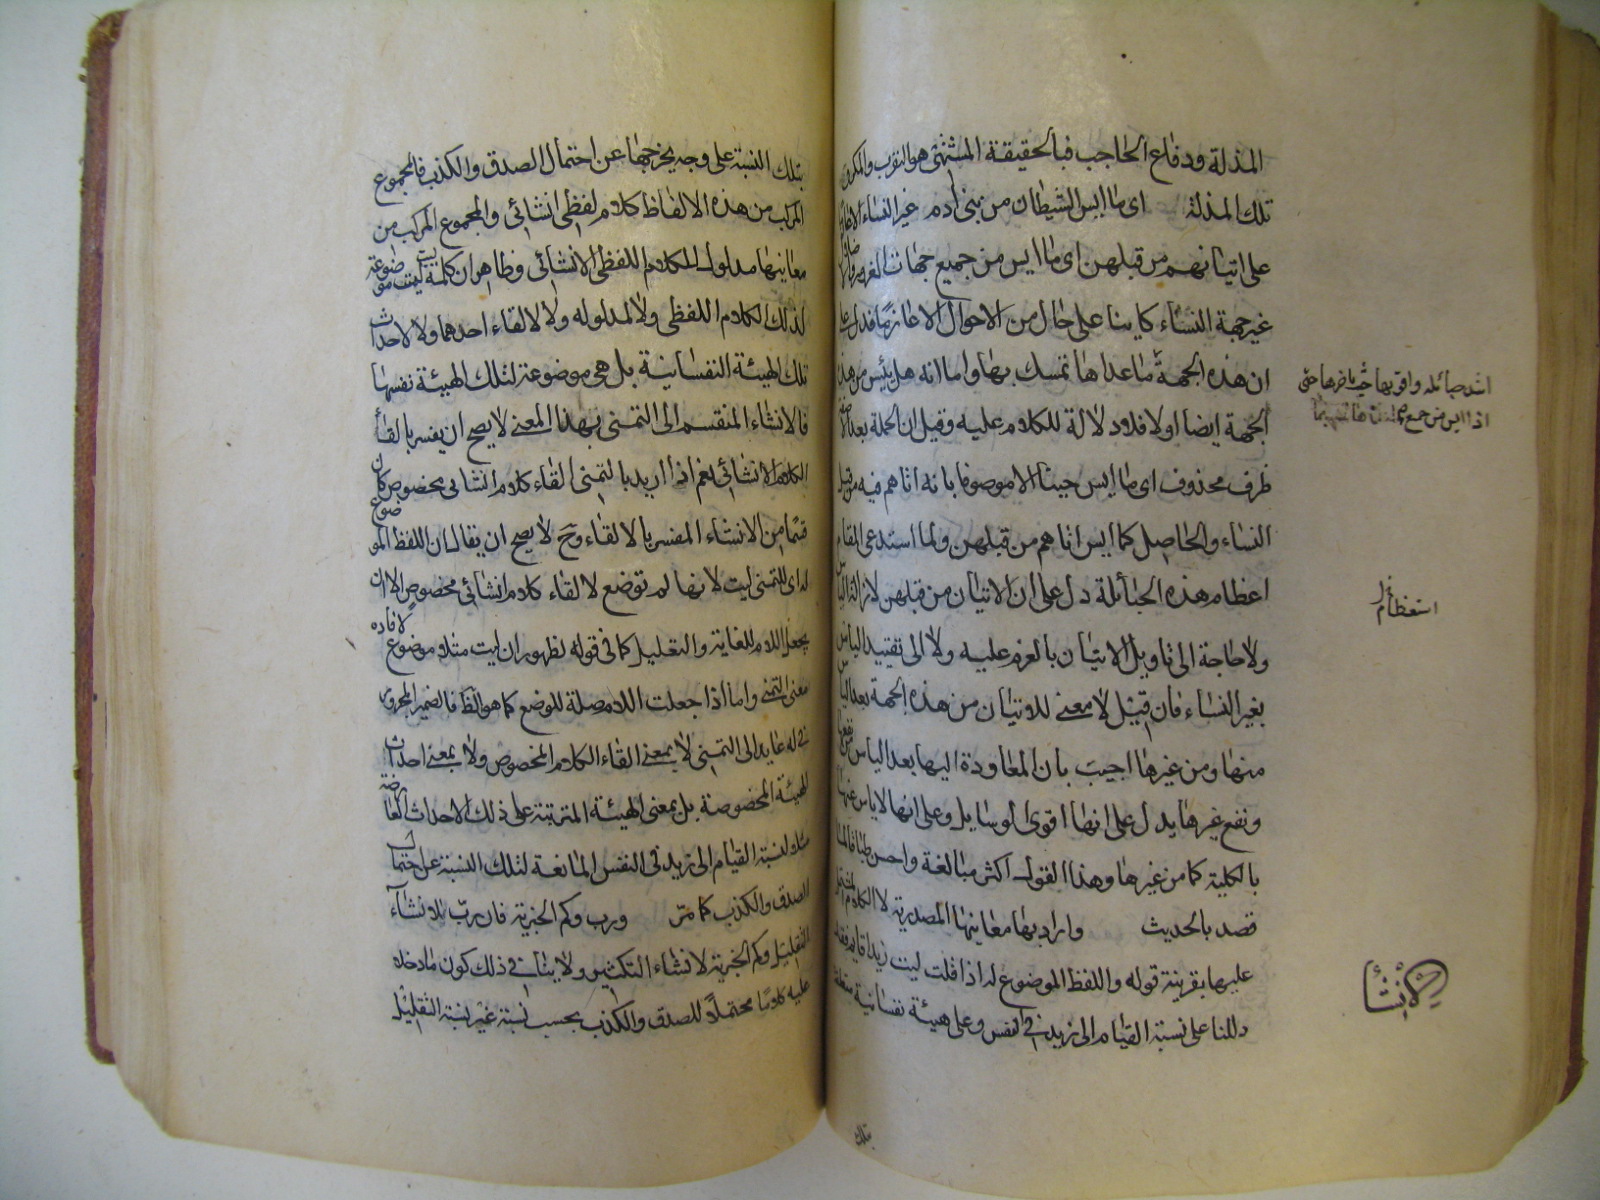 المذلة ودفاع الحاجب فبالحقيقة المشتهى هو التقرب والمكروه
تلك المذلة اى ما ايس الشيطان من بنى ادم غير النساء الا عازما
على اتيانهم من قبلهن اى ما ايس من جميع جهات الغرور والاضلال
غير جهة النساء كاينا على حال من الاحوال الا عازما فدل على
ان هذه الجهة ما عداها تمسك بها واما انه هل يئس من هذه
الجهة ايضا اولا فلا دلالة للكلام عليه وقيل ان الجملة بعد الا صفة
ظرف محذوف اى ما ايس حينا الا موصوفا بانه اتاهم فيه من قبل
النساء والحاصل كلما ايس اتاهم من قبلهن ولما استدعى المقام
اعظام هذه الحبائلة دل على ان الاتيان من قبلهن لازالة الياس
ولا حاجة الى تاويل الاتيان بالعزم عليه ولا الى تقييد الياس
بغير النساء فان قيل لا معنى للاتيان من هذه الجهة بعد الياس
منها ومن غيرها اجيب بان المعاودة اليها بعد الياس من نفعها
ونفع غيرها يدل على انها اقوى الوسايل وعلى انها لا ياس عنها
بالكلية كما من غيرها وهذا القول اكثر مبالغة واحسن طباقا لما
قصد بالحديث واراد بها معانيها المصدرية لا الكلام المشتمل
عليها بقرينة قوله واللفظ الموضوع له اذا قلت ليت زيدا قايم فقد
دللنا على نسبة القيام الى زيد فى النفس وعلى هيئة نفسانية متعلقة
اشد حبائله واقويها حيث ياخرها حتى
اذا ايس من جميع
استعظام
الانشا
بتلك
بتلك النسبة على وجه يخرجها عن احتمال الصدق والكذب فالمجموع
المركب من هذه الالفاظ كلام لفظى انشائى والمجموع المركب من
معانيها مدلول الكلام اللفظى الانشائى وظاهر ان كلمة ليت ليست موضوعة
لذلك الكلام اللفظى ولا لمدلوله ولا لالقاء احدهما ولا لاحداث
تلك الهيئة النفسانية بل هى موضوعة لتلك الهيئة نفسها
فالانشاء المنقسم الى التمنى بهذا المعنى لا يصح ان يفسر بالقاء
الكلام الانشائى نعم اذا اريد بالتمنى القاء كلام انشائى مخصوص كان
قسما من الانشاء المفسر بالالقاء وح لا يصح ان يقال ان اللفظ الموضوع
له اى للتمنى ليت لانها لم توضع لالقاء كلام انشائى مخصوص الا ان
يجعل اللام للغاية والتعليل كما فى قوله لظهور ان ليت مثلا موضوع لافادة
معنى التمنى واما اذا جعلت اللام صلة للوضع كما هو الظ فالضمير المجرور
فى له عايد الى التمنى لا بمعنى القاء الكلام المخصوص ولا بمعنى احداث
الهيئة المخصوصة بل بمعنى الهيئة المترتبة على ذلك الاحداث العارضة
مثلا لنسبة القيام الى زيد فى النفس المانعة لتلك النسبة عن احتمال
الصدق والكذب كما مر ورب وكم الخبرية فان رب لانشاء
التقليل وكم الخبرية لانشاء التكثير ولا ينافى ذلك كون ما دخلا
عليه كلاما محتملا للصدق والكذب بحسب نسبة غير نسبة التقليل